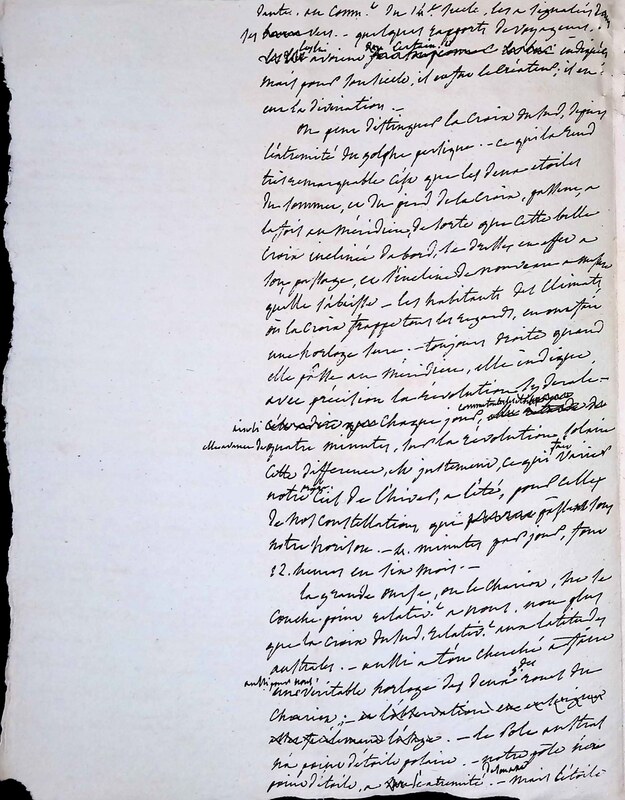 Dante. au Comm.t du 14.e siecle, les a signalés dans
ses vers. - quelques rapports de voyageurs,
avoient indiquées
mais pour son siecle, il en fut le Créateur; il en
eut la divination. -
On peut distinguer la Croix du Sud, depuis
l'extremité du golphe persique. - ce qui la rend
tres remarquable c'est que les deux etoiles
du sommet, et du pied de la Croix, passent, a
la fois au Méridien, de sorte que cette belle
Croix inclinée dabord, se dresse en effet a
son passage, et s'incline de nouveau a mesure
quelle s'abaisse - les habitants des Climats,
ou la Croix frappe tous les regards, en ont fait
une horloge sure. - toujours droite quand
elle passe au Méridien, elle indique,
avec précision la révolution siderale -
ainsi chaque jour,
elle avance de quatre minutes, sur la revolution, solaire
Cette difference, est justement, ce qui fait varier
notre Ciel de l'hiver, a l'été, pour celles
de nos constellations, qui passent sous
notre horison. - 4. minutes par jour, font
12. heures en six mois. -
la grande ourse, ou le Chariot, ne se
couche point relativ.t a nous, non plus
que la Croix du Sud, relativ.t aux latitudes
australes. - aussi a t'on cherché a faire
aussi pour nous,
une veritable horloge des deux roues du
Chariot; - de l'observation
- le Pole austral
n'a point d'étoile polaire. - notre pole n'a
point d'étoile, a l'extremité. - Mais l'étoile